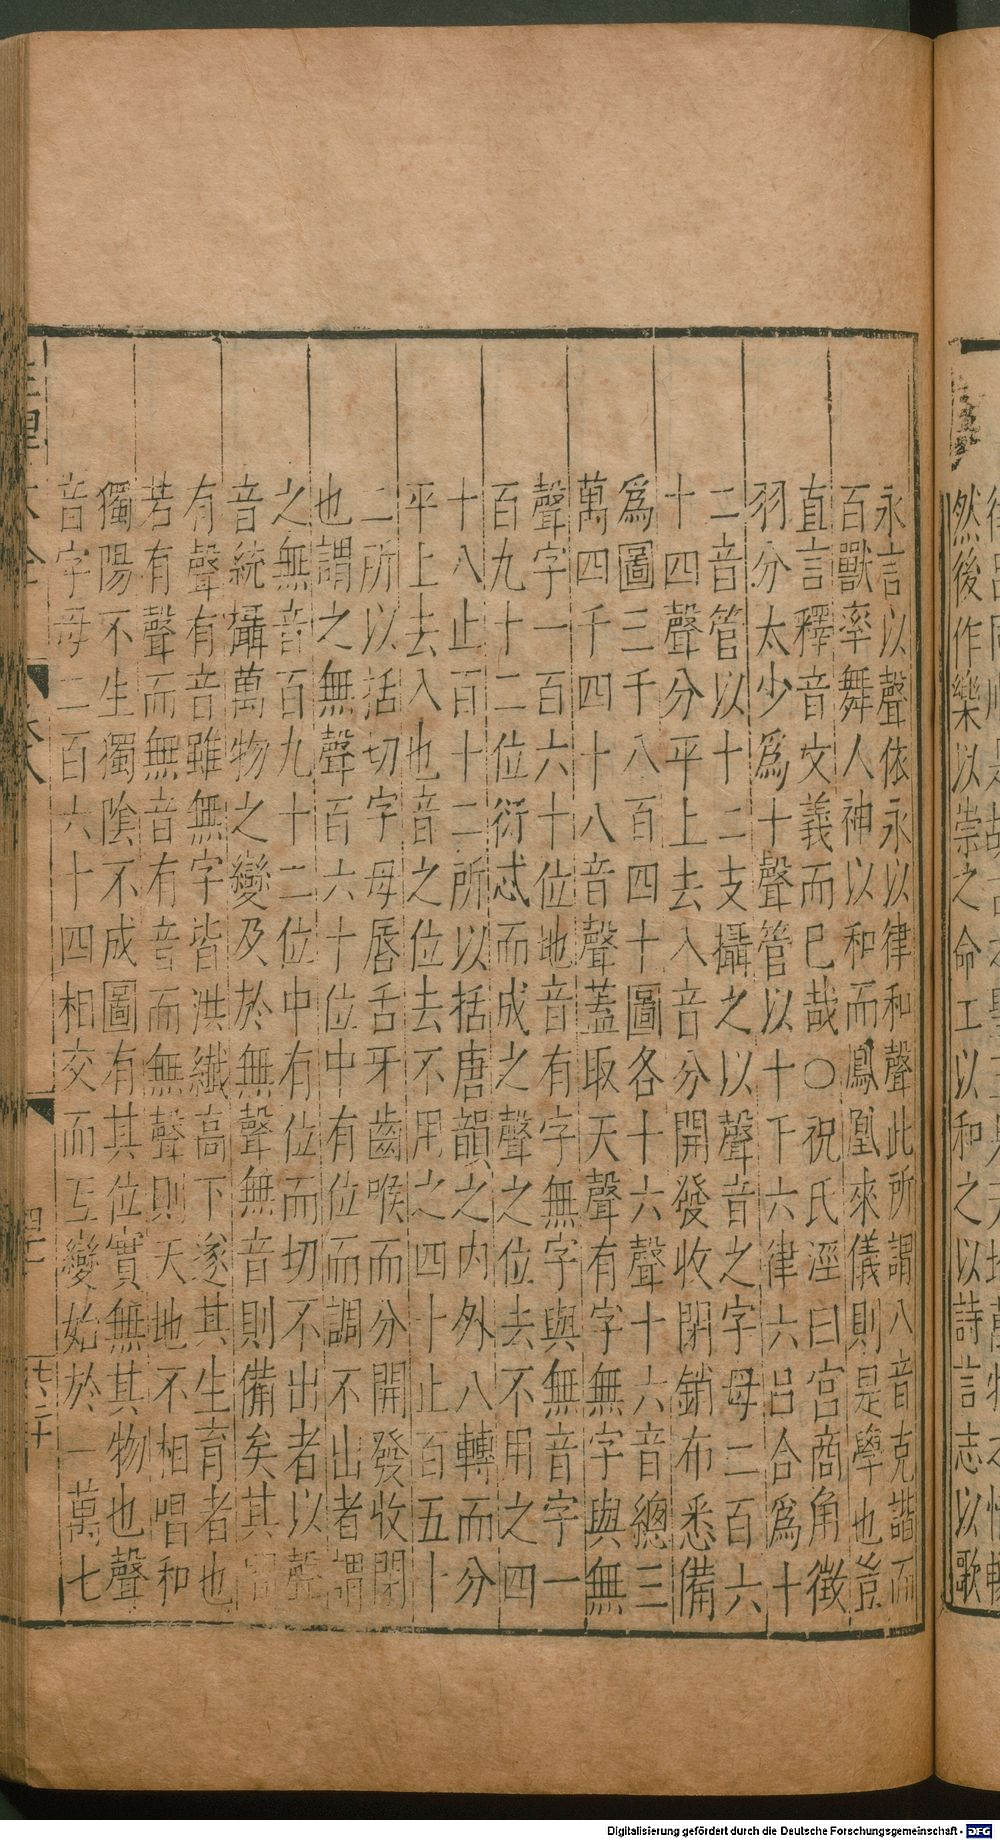 然後作樂以崇之命工以和之以詩言志以歌
永言以聲依永以律和聲此所謂八音克諧而
百獸率舞人神以和而鳳凰來儀則是學也豈
直言釋音文義而已哉○祝氏涇曰宮商角徴
羽分太少爲十聲管以十下六律六呂合爲十
二音管以十二支攝之以聲音之字母二百六
十四聲分平上去入音分開發收閉銷布悉備
爲圖三千八百四十圖各十六聲十六音總三
萬四千四十八音聲蓋取天聲有字無字與無
聲字一百六十位地音有字無字與無音字一
百九十二位衍忒而成之聲之位去不用之四
十八止百十二所以括唐韻之内外八轉而分
平上去入也音之位去不用之四十止百五十
二所以括切字母唇舌牙齒喉而分開發收閉
也謂之無聲百六十位中有位而調不出者謂
之無音百九十二位中有位而切不出者以聲
音統攝萬物之變及於無聲無音則備矣其間
有聲有音雖無字皆洪纖高下遂其生育者也
若有聲而無音有音而無聲則天地不相唱和
獨陽不生獨陰不成圖有其位實無其物也聲
音字母二百六十四相交而互變始於一萬七
Digitalisierung gefördert durch die Deutsche Forschungsgemeinschaft - DFG